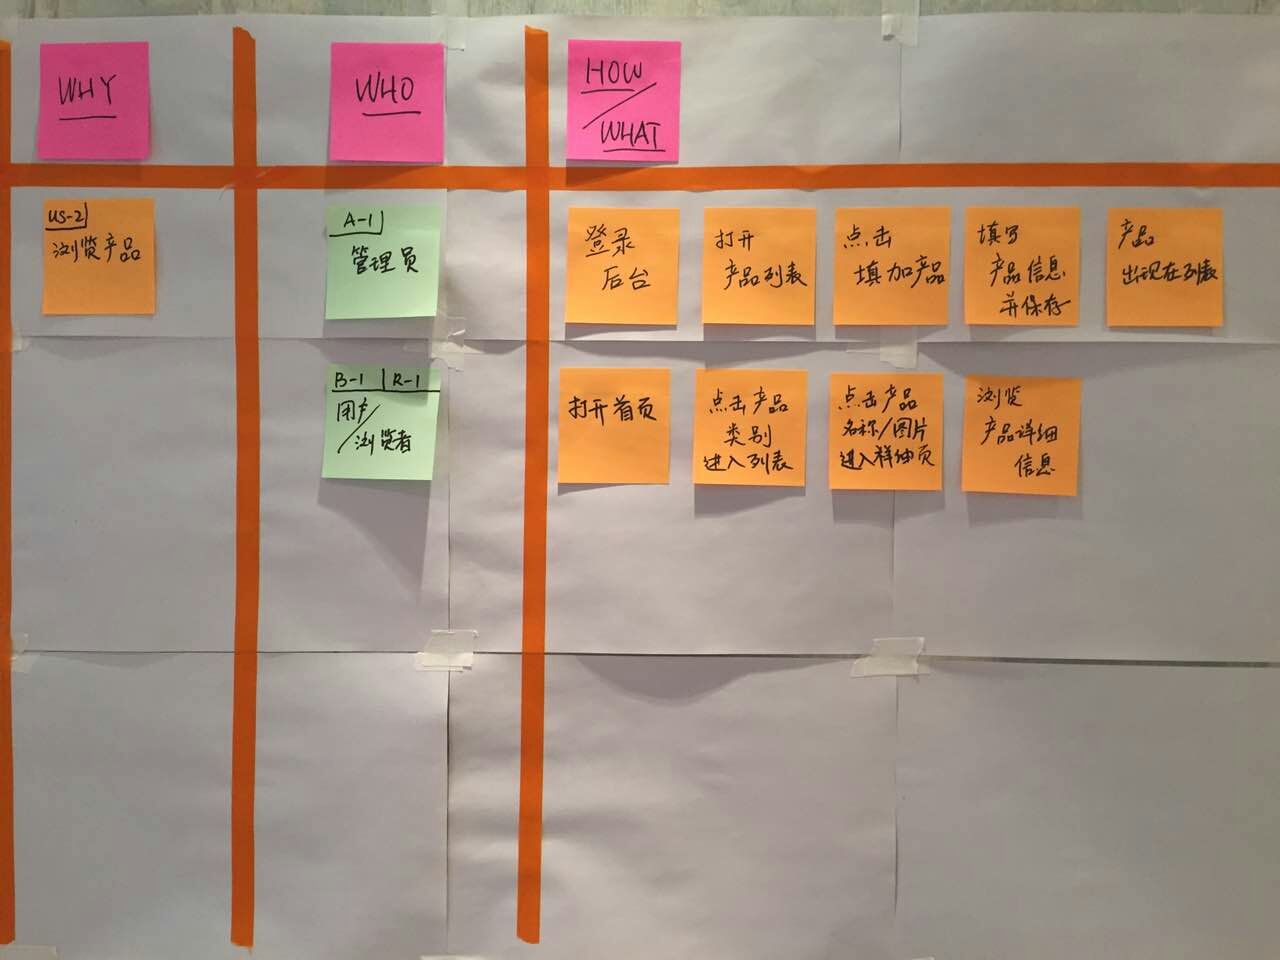 WHY
WHO
HOW
/
WHAT
US-2
浏览产品
A-1
管理员
登录
后台
打开
产品列表
点击
填加产品
填写
产品信息
并保存
产品
出现在列表
B-1 R-1
用户/
浏览者
打开首页
点击产品
类别
进入列表
点击产品
名称/图片
进入详细页
浏览
产品详细
信息